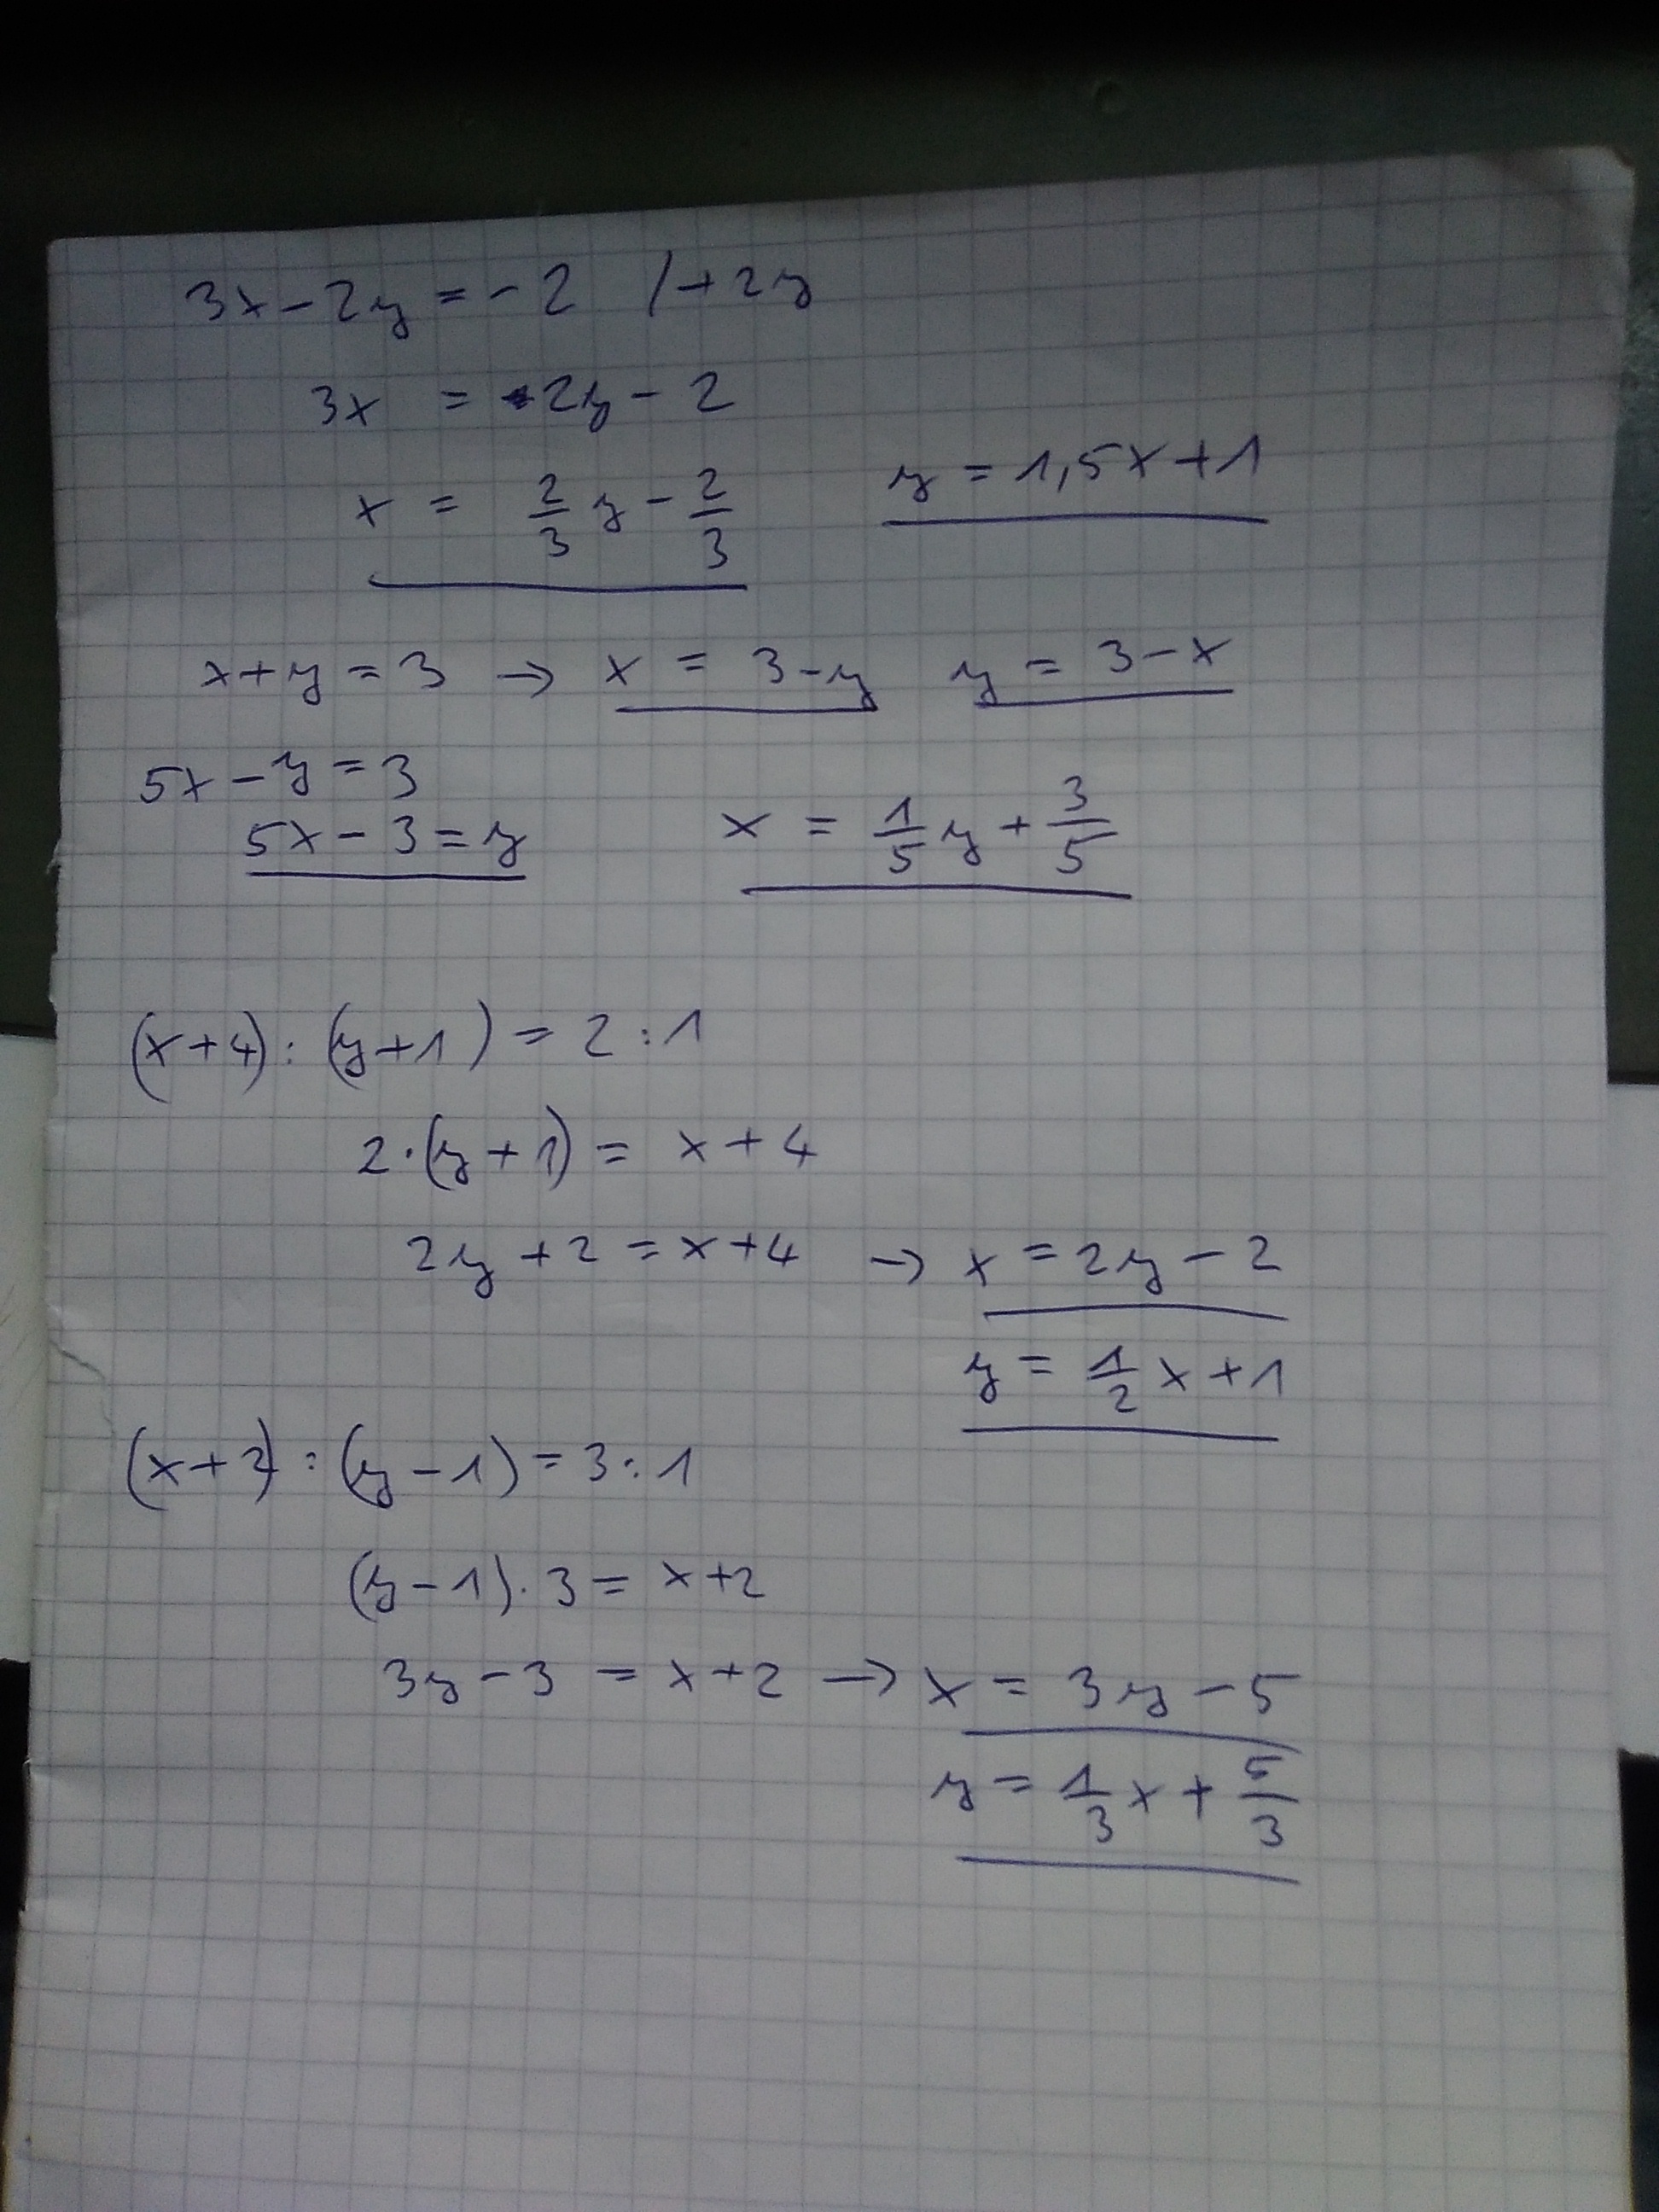 3x - 2y = -2 /+2y
3x = 2y - 2
x = 2/3 y - 2/3 y = 1,5x + 1
x + y = 3 → x = 3 - y y = 3 - x
5x - y = 3
5x - 3 = y x = 1/5 y + 3/5
(x + 4) : (y + 1) = 2 : 1
2 · (y + 1) = x + 4
2y + 2 = x + 4 → x = 2y - 2
y = 1/2 x + 1
(x + 2) : (y - 1) = 3 : 1
(y - 1) · 3 = x + 2
3y - 3 = x + 2 → x = 3y - 5
y = 1/3 x + 5/3